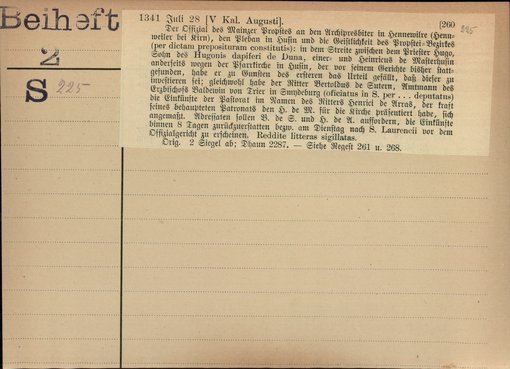 Beiheft
2
S 225
1341 Juli 28 [V Kal. Augusti]. [260
225
Der Offizial des Mainzer Propstes an den Archipresbiter in Hennewilre (Henn-
weiler bei Kirn), den Pleban in Husin und die Geistlichkeit des Propstei-Bezirkes
(per dictam preposituram constitutis): in dem Streite zwischen dem Priester Hugo,
Sohn des Hugonis dapiferi de Duna, einer- und Heinricus de Masterhusin
anderseits wegen der Pfarrkirche in Husin, der vor seinem Gerichte bisher statt-
gefunden, habe er zu Gunsten des ersteren das Urteil gefällt, daß dieser zu
investieren sei; gleichwohl habe der Ritter Bertoldus de Sutern, Amtmann des
Erzbischofs Baldewin von Trier in Smydeburg (oficiatus in S. per ... deputatus)
die Einkünfte der Pastorat im Namen des Ritters Henrici de Arras, der kraft
seines behaupteten Patronats den H. de M. für die Kirche präsentiert habe, sich
angemaßt. Adressaten sollen B. de S. und H. de A. auffordern, die Einkünfte
binnen 8 Tagen zurückzuerstatten bezw. am Dienstag nach S. Laurencii vor dem
Offizialgericht zu erscheinen. Reddite litteras sigillatas.
Orig. 2 Siegel ab; Dhaun 2287. — Siehe Regest 261 u. 268.